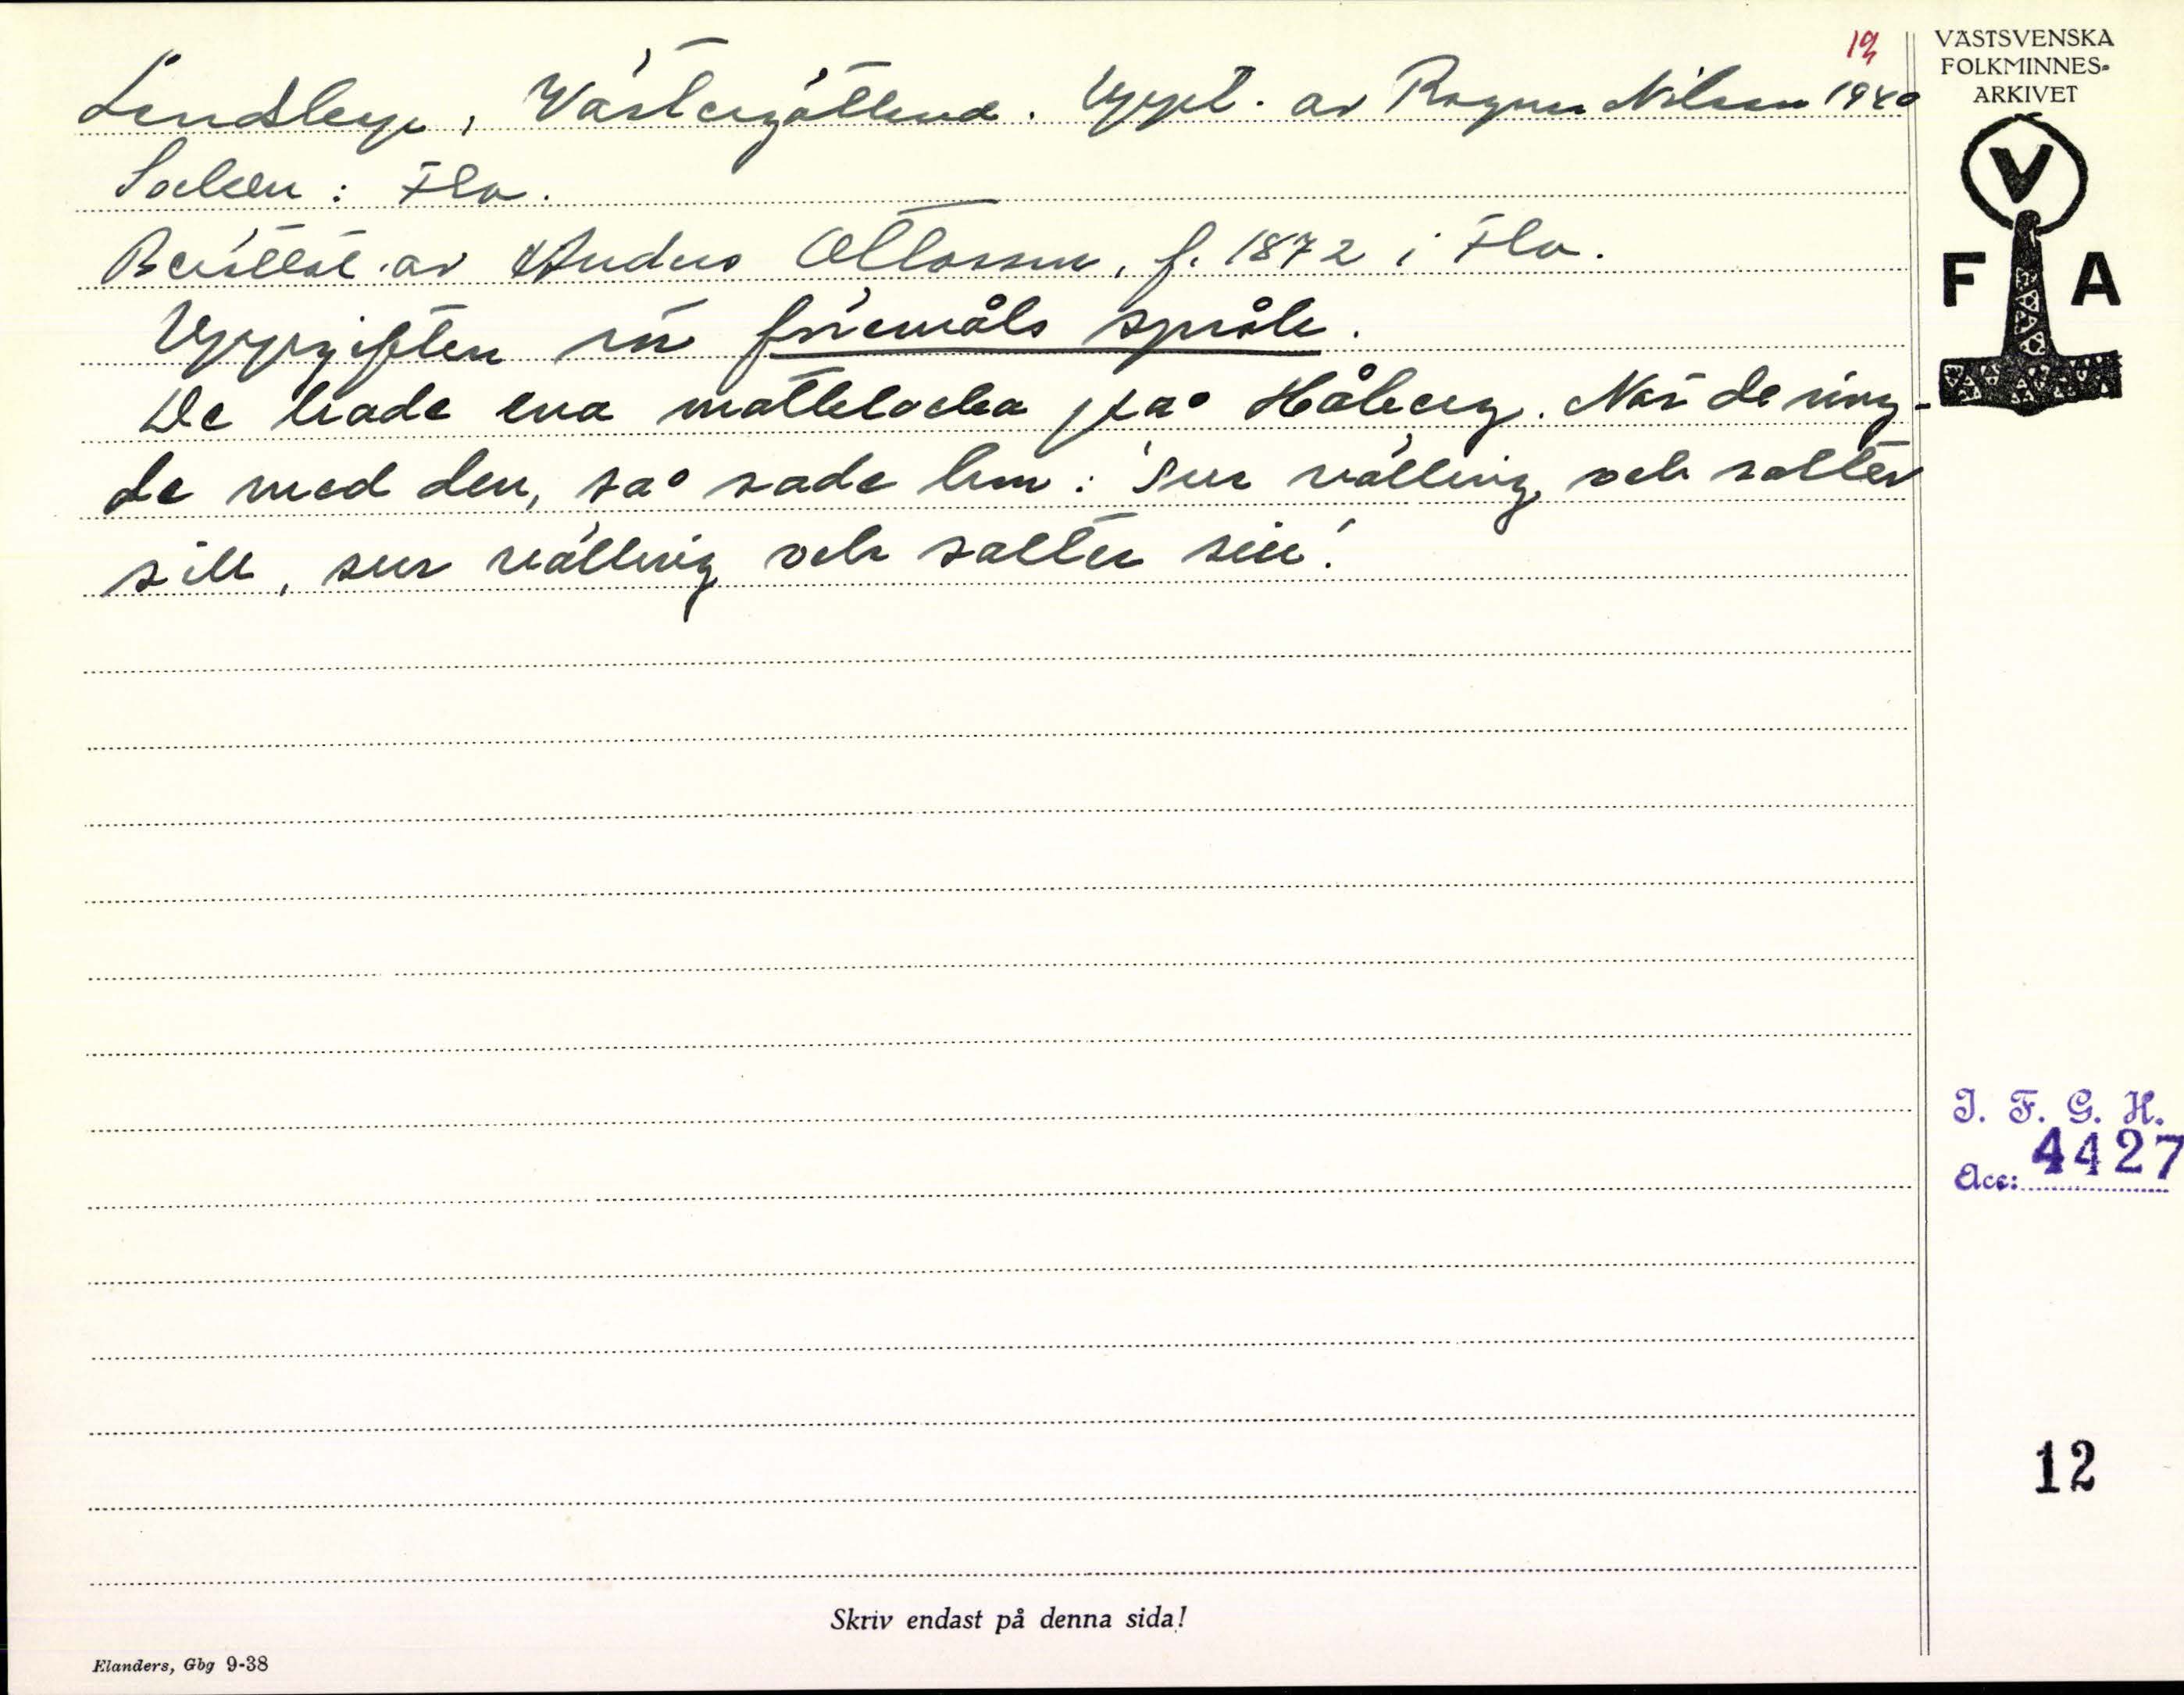 12
VÄSTSVENSKA
FOLKMINNES-
ARKIVET
Landskap: Västergötland. Uppt. av Ragnar Nilsson 1940
Socken: Flo.
Berättat av Anders Ottosson, f. 1872 i Flo.
Uppgiften rör föremåls språk.
De hade ena matklocka på Håberg. När de ring-
de med den, så sade hon: 'Sur välling och salter
sill, sur välling och salter sill!
V
F A
I. F. G. H.
Acc: 4427
12
Skriv endast på denna sida!
Elanders, Gbg 9-38